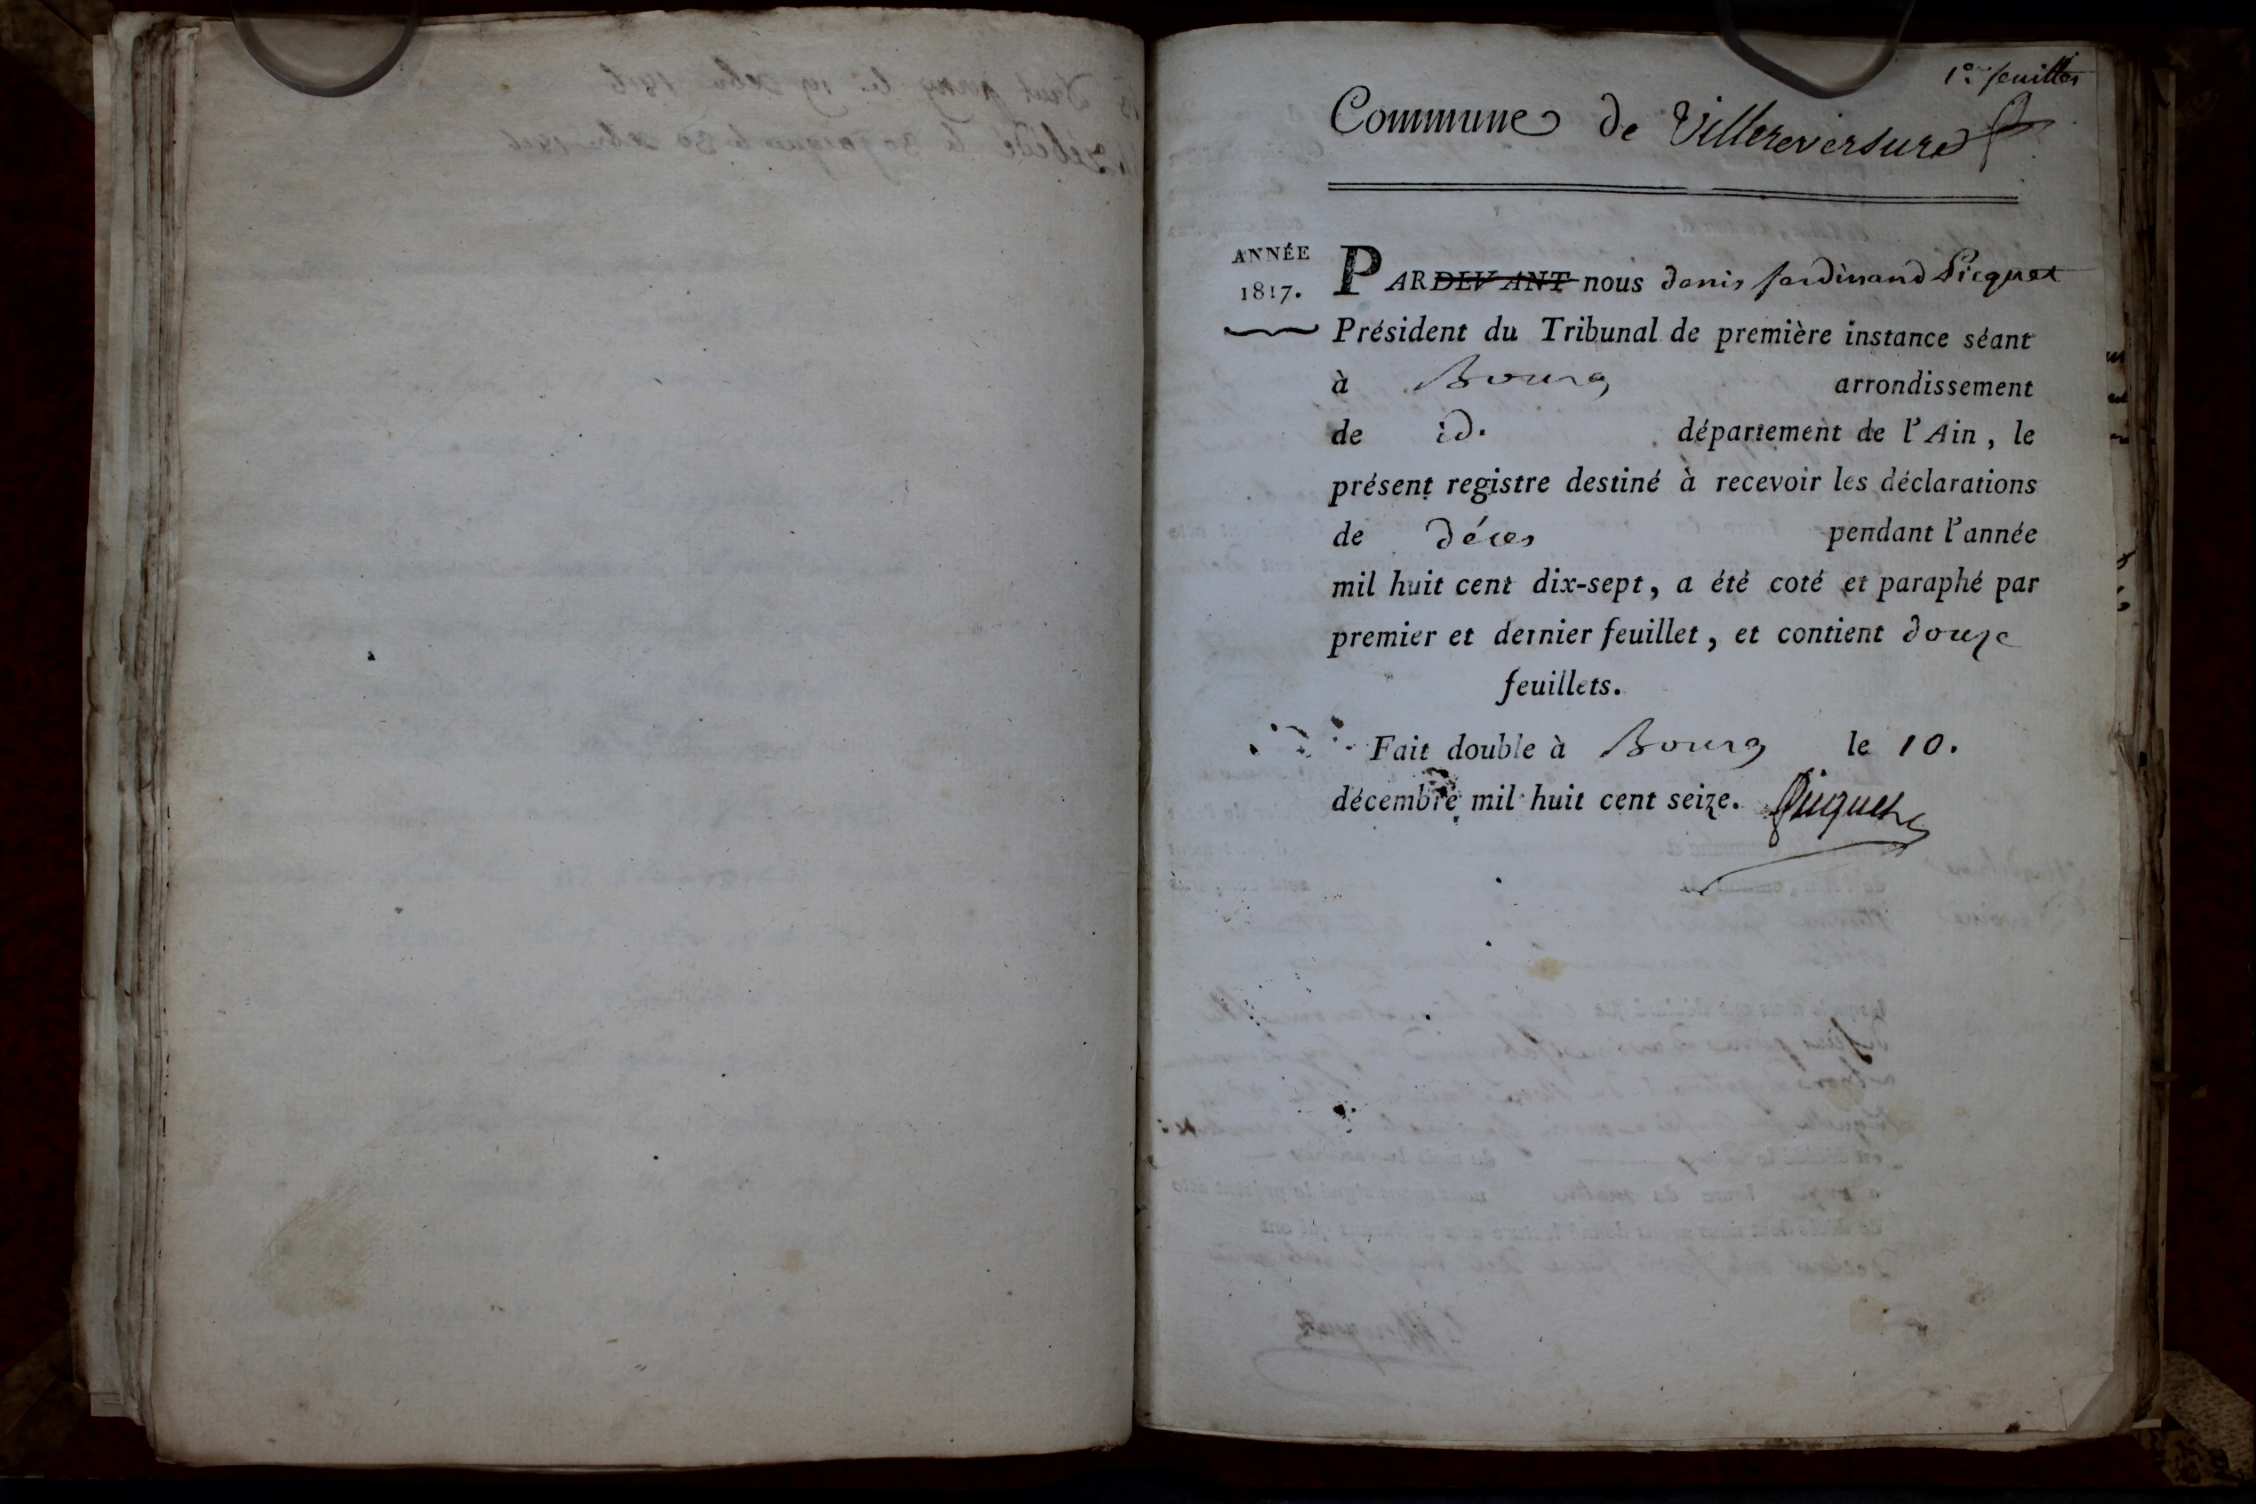 1er feuillet
Commune de Villereversure
ANNÉE
1817.
PARDEVANT nous denis ferdinand Picquet
Président du Tribunal de première instance séant
à Bourg arrondissement
de id. département de l'Ain, le
présent registre destiné à recevoir les déclarations
de décès pendant l'année
mil huit cent dix-sept, a été coté et paraphé par
premier et dernier feuillet, et contient douze
feuillets.
Fait double à Bourg le 10.
décembre mil huit cent seize. Picquet